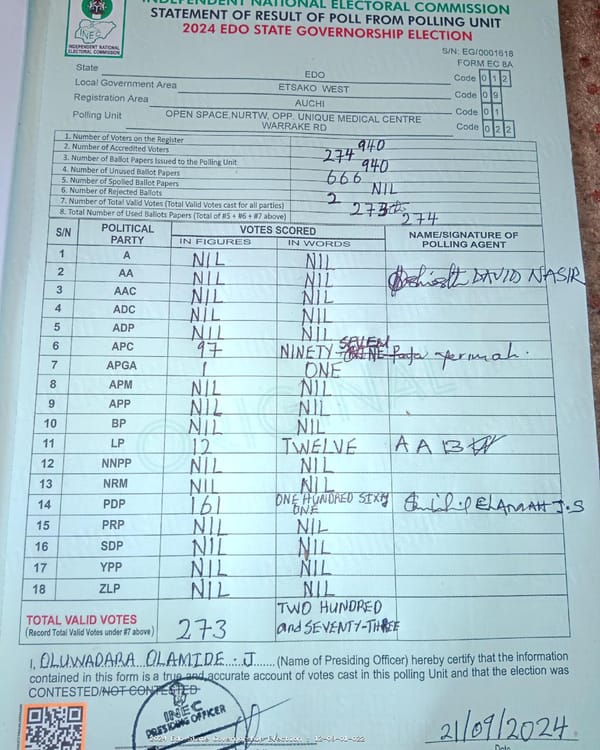 INDEPENDENT NATIONAL ELECTORAL COMMISSION
STATEMENT OF RESULT OF POLL FROM POLLING UNIT
2024 EDO STATE GOVERNORSHIP ELECTION
INEC
INDEPENDENT NATIONAL
ELECTORAL COMMISSION
S/N: EG/0001618
FORM EC 8A
State EDO Code 0 1 2
Local Government Area ETSAKO WEST Code 0 9
Registration Area AUCHI Code 0 1
Polling Unit OPEN SPACE,NURTW, OPP. UNIQUE MEDICAL CENTRE
WARRAKE RD Code 0 2 2
1. Number of Voters on the Register 940
2. Number of Accredited Voters 274
3. Number of Ballot Papers Issued to the Polling Unit 940
4. Number of Unused Ballot Papers 666
5. Number of Spoiled Ballot Papers NIL
6. Number of Rejected Ballots
7. Number of Total Valid Votes (Total Valid Votes cast for all parties) 273
8. Total Number of Used Ballots Papers (Total of #5 + #6 + #7 above) 274
S/N POLITICAL PARTY VOTES SCORED NAME/SIGNATURE OF POLLING AGENT
IN FIGURES IN WORDS
1 A NIL NIL
2 AA NIL NIL DAVID NASIR
3 AAC NIL NIL
4 ADC NIL NIL
5 ADP NIL NIL
6 APC 97 NINETY SEVEN
7 APGA 1 ONE
8 APM NIL NIL
9 APP NIL NIL
10 BP NIL NIL
11 LP 12 TWELVE A A B
12 NNPP NIL NIL
13 NRM NIL NIL
14 PDP 161 ONE HUNDRED SIXTY ONE J.S
15 PRP NIL NIL
16 SDP NIL NIL
17 YPP NIL NIL
18 ZLP NIL NIL
TOTAL VALID VOTES 273 TWO HUNDRED
(Record Total Valid Votes under #7 above) and SEVENTY-THREE
I, OLUWADARA OLAMIDE . J (Name of Presiding Officer) hereby certify that the information
contained in this form is a true and accurate account of votes cast in this polling Unit and that the election was
CONTESTED/NOT CONTESTED
INEC
PRESIDING OFFICER
2024 Edo State Governorship Election - 12-09-01-022
21/09/2024
Date